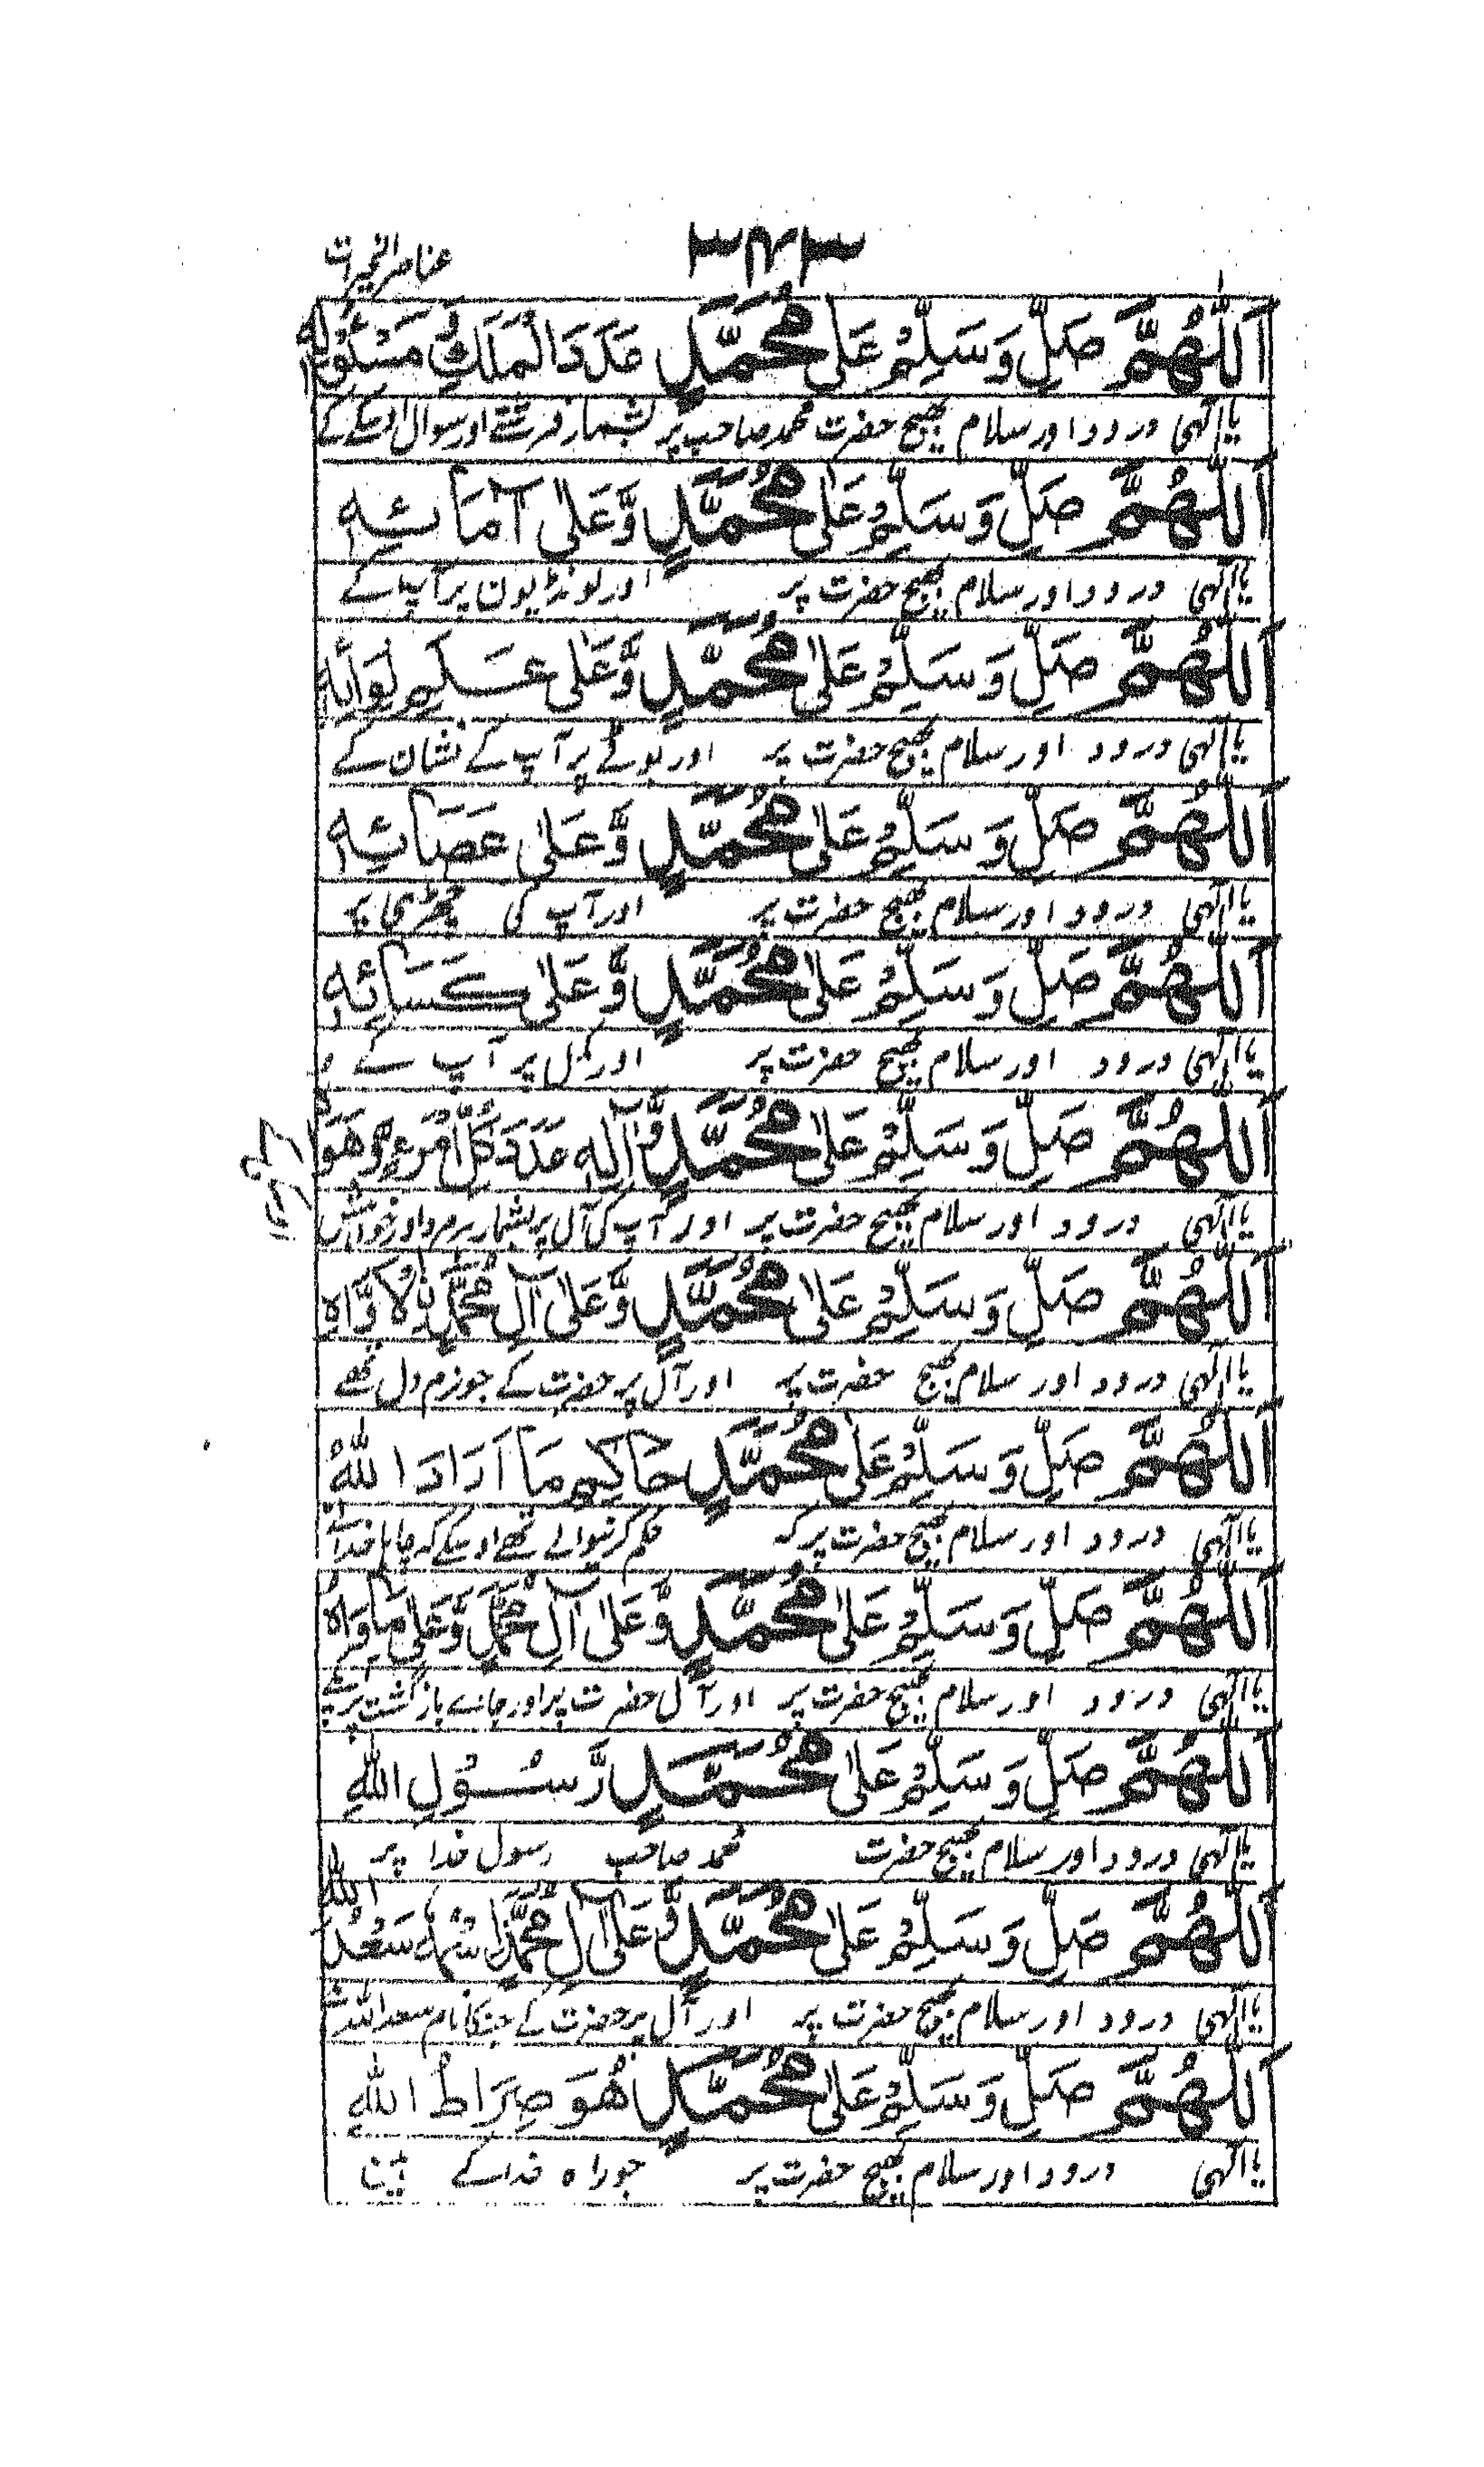 ۳۴۳
عناصر الخیرات
اَللّٰهُمَّ صَلِّ وَسَلِّمْ عَلٰى مُحَمَّدٍ عَدَدَ الْمَلَكِ مَسْئُوْلِهٖ
یا الٰهی درود اور سلام بھیج حضرت محمد صاحب پر بشمار فرشتے اور سوال اوسکے کے
اَللّٰهُمَّ صَلِّ وَسَلِّمْ عَلٰى مُحَمَّدٍ وَّعَلٰى آمَائِهٖ
یا الٰهی درود اور سلام بھیج حضرت پر اور لونڈیون پر آپ کے
اَللّٰهُمَّ صَلِّ وَسَلِّمْ عَلٰى مُحَمَّدٍ وَّعَلٰى عَسَكِمِ لِوَائِهٖ
یا الٰهی درود اور سلام بھیج حضرت پر اور بوٹے پر آپ کے نشان کے
اَللّٰهُمَّ صَلِّ وَسَلِّمْ عَلٰى مُحَمَّدٍ وَّعَلٰى عَصَائِهٖ
یا الٰهی درود اور سلام بھیج حضرت پر اور آپ کی چھڑی پر
اَللّٰهُمَّ صَلِّ وَسَلِّمْ عَلٰى مُحَمَّدٍ وَّعَلٰى كَسَائِهٖ
یا الٰهی درود اور سلام بھیج حضرت پر اور کمل پر آپ کے
اَللّٰهُمَّ صَلِّ وَسَلِّمْ عَلٰى مُحَمَّدٍ وَّاٰلِهٖ عَدَدَ كُلِّ امْرَءٍ وَّهَوَاهُ
یا الٰهی درود اور سلام بھیج حضرت پر اور آپ کی آل پر بشمار ہر مرد اور خواہش
اَللّٰهُمَّ صَلِّ وَسَلِّمْ عَلٰى مُحَمَّدٍ وَّعَلٰى اٰلِ مُحَمَّدٍ الْاَوَّاهِ
یا الٰهی درود اور سلام بھیج حضرت پر اور آل پر حضرت کے جو نرم دل تھے
اَللّٰهُمَّ صَلِّ وَسَلِّمْ عَلٰى مُحَمَّدٍ حَاكِمِ مَا اَرَادَ اللّٰهُ
یا الٰهی درود اور سلام بھیج حضرت پر کہ حکم کرنیوالے تھے اوسکے کہ چاہا خدا نے
اَللّٰهُمَّ صَلِّ وَسَلِّمْ عَلٰى مُحَمَّدٍ وَّعَلٰى اٰلِ مُحَمَّدٍ وَّعَلٰى
یا الٰهی درود اور سلام بھیج حضرت پر اور آل حضرت پر اور جاے بازگشت پر
اَللّٰهُمَّ صَلِّ وَسَلِّمْ عَلٰى مُحَمَّدٍ رَّسُوْلِ اللّٰهِ
یا الٰهی درود اور سلام بھیج حضرت محمد صاحب رسول خدا پر
اَللّٰهُمَّ صَلِّ وَسَلِّمْ عَلٰى مُحَمَّدٍ وَّعَلٰى اٰلِ مُحَمَّدٍ اسْمُهٗ سَعْدُ اللّٰهِ
یا الٰهی درود اور سلام بھیج حضرت پر اور آل پر حضرت کے جنکا نام سعد اللہ
اَللّٰهُمَّ صَلِّ وَسَلِّمْ عَلٰى مُحَمَّدٍ هُوَ صِرَاطُ اللّٰهِ
یا الٰهی درود اور سلام بھیج حضرت پر جو راہ خدا کے ہین